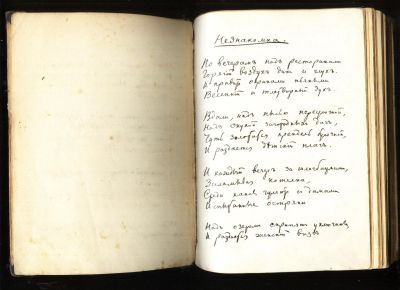 Незнакомка.
По вечерамъ надъ ресторанами
Горячій воздухъ дикъ и глухъ.
И правитъ окриками пьяными
Весенній и тлетворный духъ.
Вдали, надъ пылью переулочной,
Надъ скукой загородныхъ дачъ,
Чуть золотится крендель булочной,
И раздается дѣтскій плачъ.
И каждый вечеръ за шлагбаумами,
Заламывая котелки,
Среди канавъ гуляютъ съ дамами
Испытанные остряки
Надъ озеромъ скрипятъ уключины,
И раздается женскій визгъ